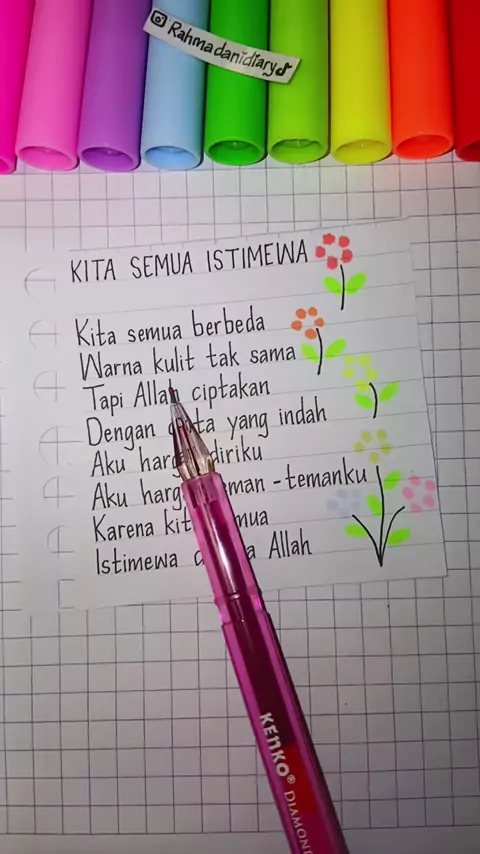 Rahmadanidiary
KITA SEMUA ISTIMEWA
Kita semua berbeda
Warna kulit tak sama
Tapi Allah ciptakan
Dengan yang indah
Aku diriku
Aku -temanku
Karena
Istimewa Allah
KENKO®